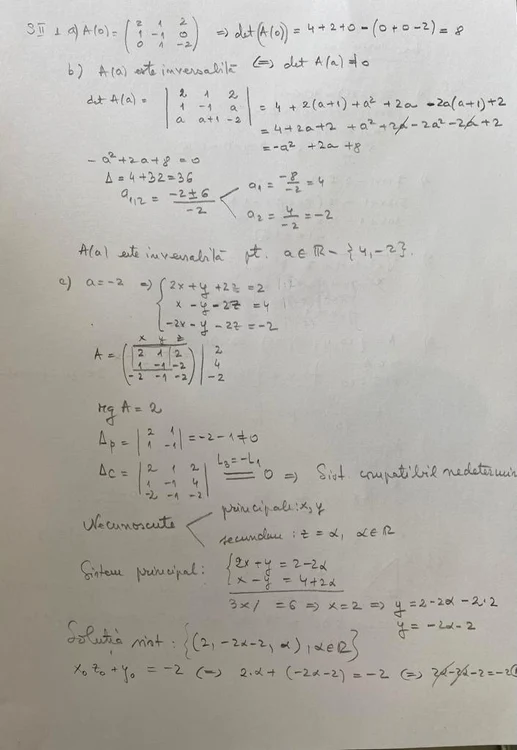 S II 1 a) A(0) = ( 2 1 2 / 1 -1 0 / 0 1 -2 ) ⇒ det(A(0)) = 4+2+0-(0+0-2) = 8
b) A(a) este inversabilă ⇔ det A(a) ≠ 0
det A(a) = | 2 1 2 / 1 -1 a / a a+1 -2 | = 4 + 2(a+1) + a² + 2a - 2a(a+1) + 2
= 4 + 2a + 2 + a² + 2a - 2a² - 2a + 2
= -a² + 2a + 8
- a² + 2a + 8 = 0
Δ = 4 + 32 = 36
a₁,₂ = (-2 ± 6)/-2
a₁ = -8/-2 = 4
a₂ = 4/-2 = -2
A(a) este inversabilă pt. a ∈ ℝ - {4, -2}.
c) a = -2 ⇒ { 2x + y + 2z = 2
x - y - 2z = 4
-2x - y - 2z = -2
x y z
A = ( 2 1 2 / 1 -1 -2 / -2 -1 -2 ) | 2 / 4 / -2
rg A = 2
Δp = | 2 1 / 1 -1 | = -2 - 1 ≠ 0
Δc = | 2 1 2 / 1 -1 4 / -2 -1 -2 | L₃=-L₁ = 0 ⇒ Sist compatibil nedetermin
Necunoscute
principale: x, y
secundare: z = α, α ∈ ℝ
Sistem principal: { 2x + y = 2 - 2α
x - y = 4 + 2α
3x / = 6 ⇒ x = 2 ⇒ y = 2 - 2α - 2·2
y = -2α - 2
Soluția sist: {(2, -2α-2, α), α ∈ ℝ}
x₀ z₀ + y₀ = -2 ⇔ 2·α + (-2α-2) = -2 ⇔ 2α - 2α - 2 = -2